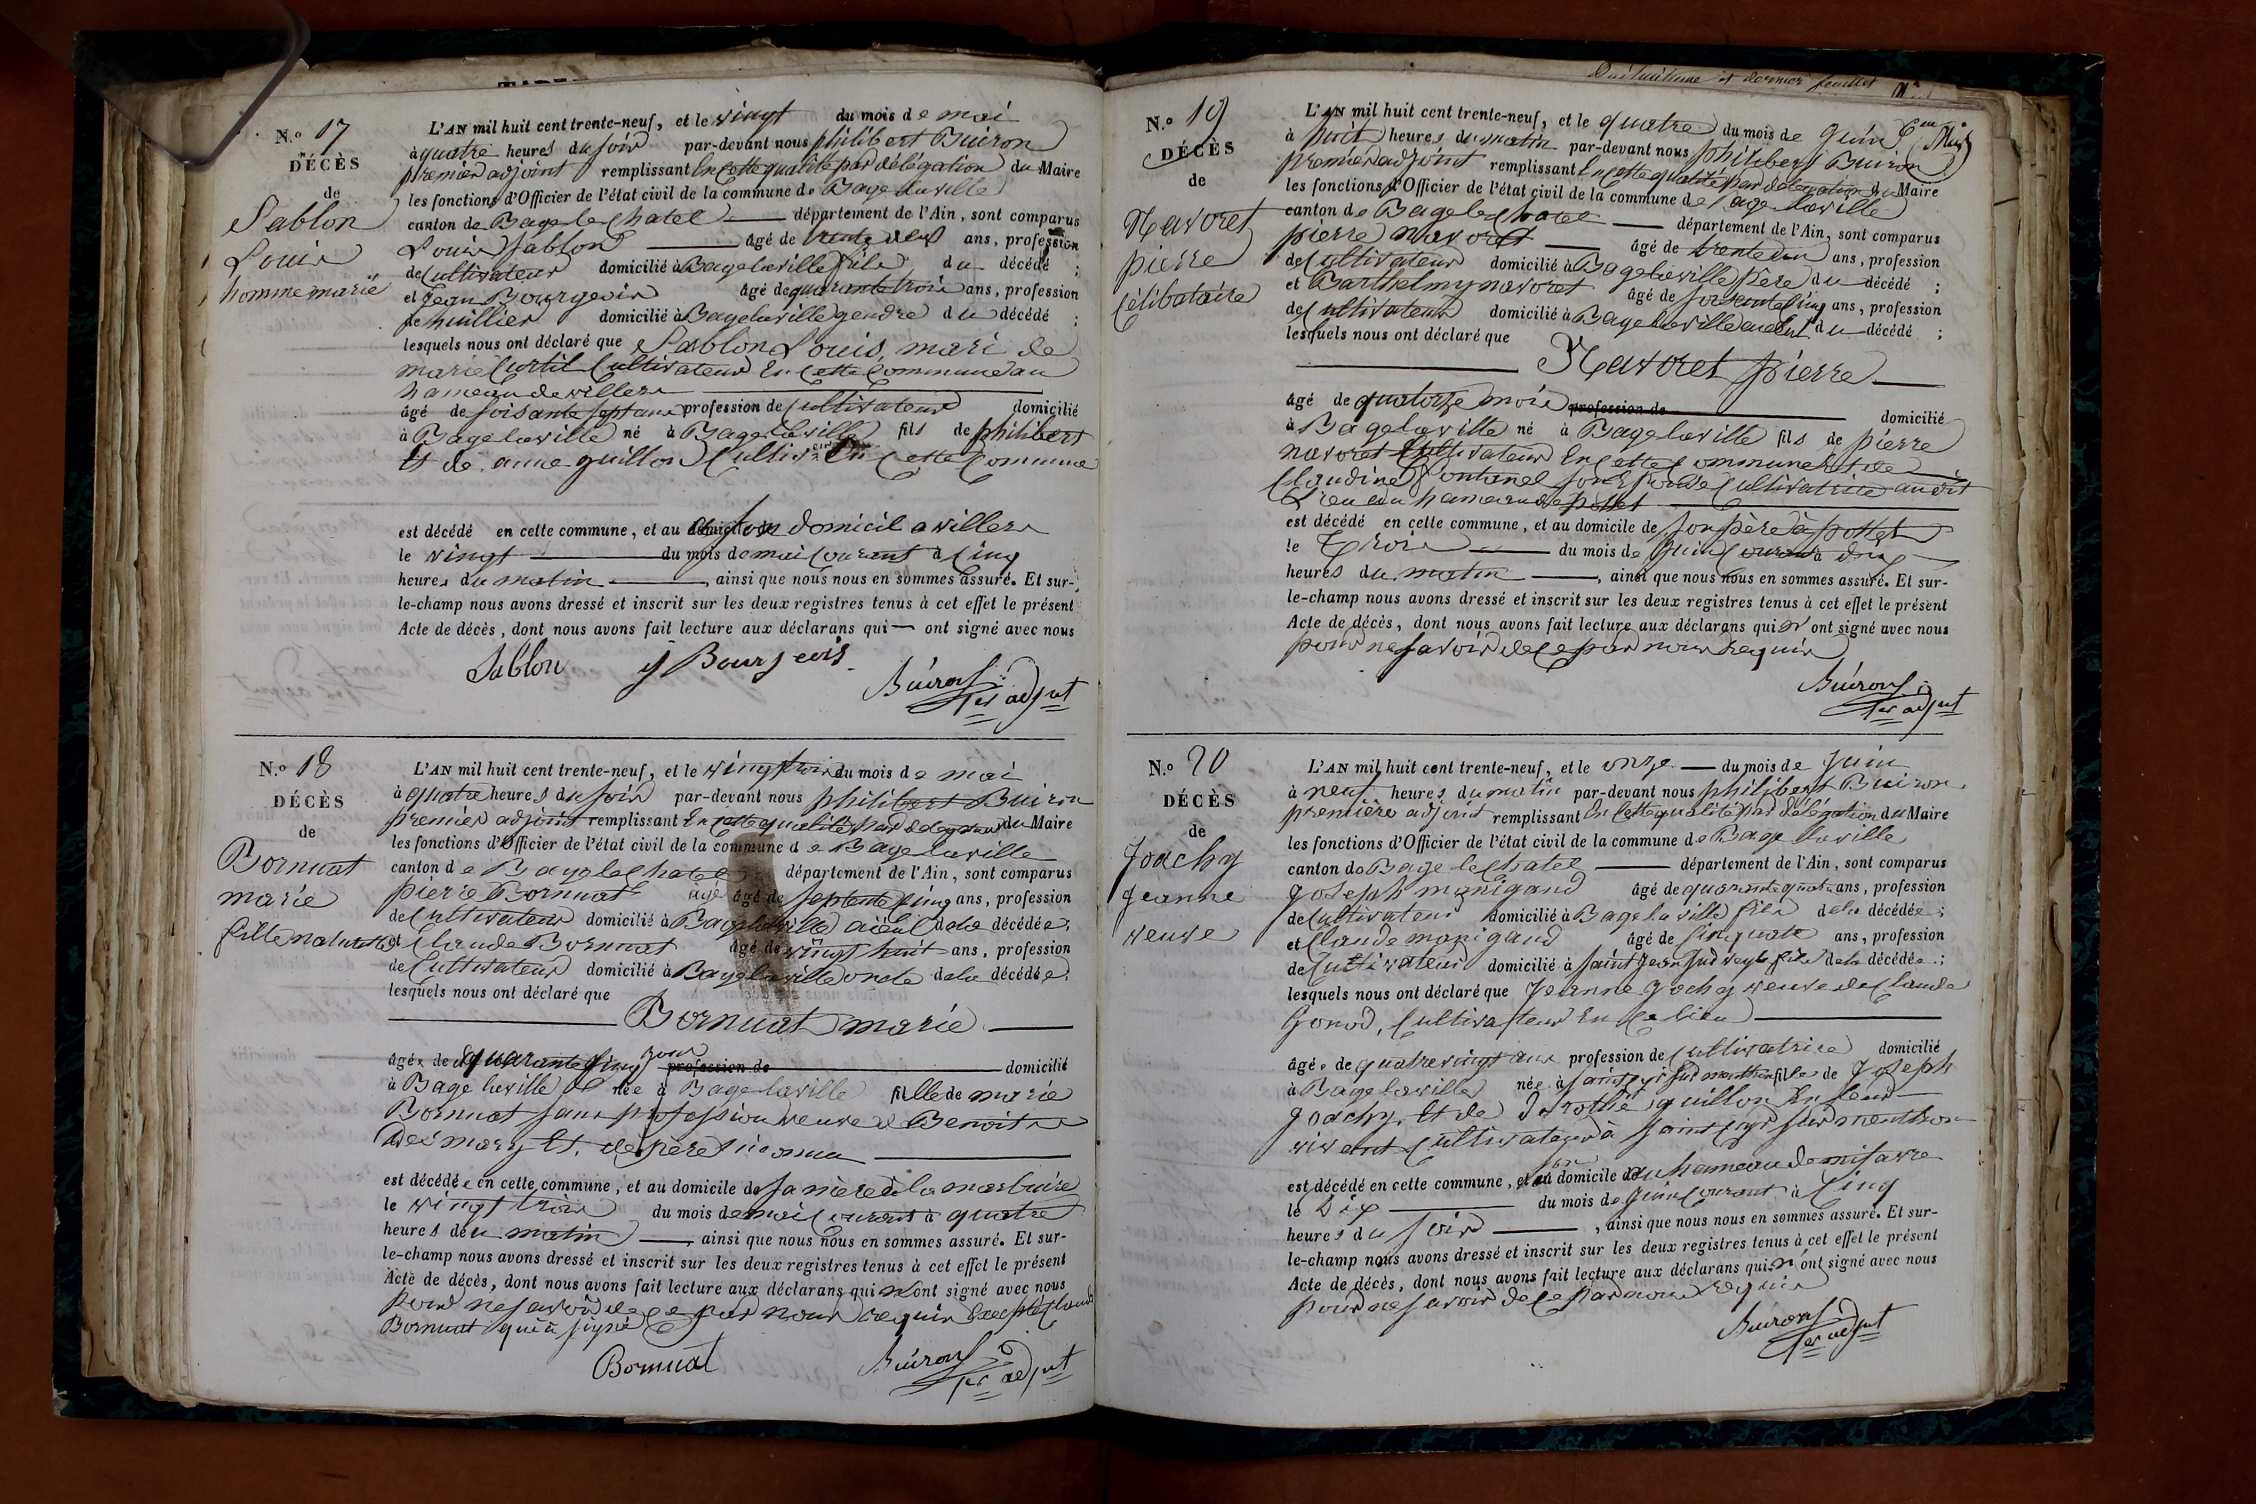 N.o 17
DÉCÈS
de
Sablon
Louis
homme marié
L'AN mil huit cent trente-neuf, et le vingt du mois de mai
à quatre heures du soir par-devant nous philibert Buiron
premier adjoint remplissant En cette qualité par délégation du Maire
les fonctions d'Officier de l'état civil de la commune de Bage la ville
canton de Bage le Chatel département de l'Ain, sont comparus
Louis Sablon âgé de trente deux ans, profession
de Cultivateur domicilié à Bage la ville fils du décédé ;
et Jean Bourgeois âgé de quarante trois ans, profession
de huillier domicilié à Bage la ville gendre du décédé ;
lesquels nous ont déclaré que Sablon Louis, mari de
marie Curtil Cultivateur En Cette Commune au
hameau de villers
âgé de soisante sept ans profession de Cultivateur domicilié
à Bage la ville né à Bage la ville fils de philibert
Et de anne guillon Cultiv. En Cette Commune
est décédé en cette commune, et au domicile de son domicil a villers
le vingt du mois de mai Courant à Cinq
heures du matin, ainsi que nous nous en sommes assuré. Et sur-
le-champ nous avons dressé et inscrit sur les deux registres tenus à cet effet le présent
Acte de décès, dont nous avons fait lecture aux déclarans qui — ont signé avec nous
Sablon j Bourjeois
Buiron
1er adjnt
N.o 18
DÉCÈS
de
Bornuat
marie
fille naturelle
L'AN mil huit cent trente-neuf, et le vingt trois du mois de mai
à quatre heures du soir par-devant nous philibert Buiron
premier adjoint remplissant En cette qualité par délégation du Maire
les fonctions d'Officier de l'état civil de la commune de Bage la ville
canton de Bage le Chatel département de l'Ain, sont comparus
pierre Bornuat agé âgé de septente Cinq ans, profession
de Cultivateur domicilié à Bage la ville aieul de la décédée ;
et Claude Bornuat âgé de vingt huit ans, profession
de Cultivateur domicilié à Bage la ville oncle de la décédée ;
lesquels nous ont déclaré que
Bornuat marie
âgée de quarante Cinq jours profession de domicilié
à Bage la ville née à Bage la ville fille de marie
Bornuat sans profession veuve de Benoit
Desmary Et de père inconnu
est décédée en cette commune, et au domicile de sa mère à la
le vingt trois du mois de mai Courant à quatre
heures du matin, ainsi que nous nous en sommes assuré. Et sur-
le-champ nous avons dressé et inscrit sur les deux registres tenus à cet effet le présent
Acte de décès, dont nous avons fait lecture aux déclarans qui n'ont signé avec nous
pour ne savoir de Ce par nous requis Excepté Claude
Bornuat qui à signé
Bornuat Buiron
1er adjnt
et dernier feuillet
N.o 19
DÉCÈS
de
Navoret
pierre
Célibataire
L'AN mil huit cent trente-neuf, et le quatre du mois de Juin
à huit heures du matin par-devant nous philibert Buiron
premier adjoint remplissant En cette qualité par délégation du Maire
les fonctions d'Officier de l'état civil de la commune de Bage la ville
canton de Bage le Chatel département de l'Ain, sont comparus
pierre navoret âgé de trente un ans, profession
de Cultivateur domicilié à Bage la ville père du décédé ;
et Barthelmy navoret âgé de soisente Cinq ans, profession
de Cultivateur domicilié à Bage la ville aieul du décédé ;
lesquels nous ont déclaré que
Navoret pierre
âgé de quatorze mois profession de domicilié
à Bage la ville né à Bage la ville fils de pierre
navoret Cultivateur En Cette Commune Et de
Claudine Fontanel son Epouse Cultivatrice au dit
Lieu au hameau de pottet
est décédé en cette commune, et au domicile de son père à pottet
le Trois du mois de Juin Courant à deux
heures du matin, ainsi que nous nous en sommes assuré. Et sur-
le-champ nous avons dressé et inscrit sur les deux registres tenus à cet effet le présent
Acte de décès, dont nous avons fait lecture aux déclarans qui n'ont signé avec nous
pour ne savoir de Ce par nous Requis
Buiron
1er adjnt
N.o 20
DÉCÈS
de
Joachy
Jeanne
veuve
L'AN mil huit cent trente-neuf, et le onze du mois de Juin
à neuf heures du matin par-devant nous philibert Buiron
première adjoint remplissant En Cette qualité par délégation du Maire
les fonctions d'Officier de l'état civil de la commune de Bage la ville
canton de Bage le Chatel département de l'Ain, sont comparus
Joseph manigand âgé de quarante quatre ans, profession
de Cultivateur domicilié à Bage la ville fils de la décédée ;
et Claude manigand âgé de Cinquate ans, profession
de Cultivateur domicilié à Saint Jean Sur veyle fils de la décédée ;
lesquels nous ont déclaré que Jeanne Jochy veuve de Claude
Gonod, Cultivateur En Ce lieu
âgée de quatre vingt ans profession de Cultivatrice domicilié
à Bage la ville née à saint Cyr sur menthon fille de Joseph
Joachy, Et de Dorothé guillon En leur
vivant Cultivateur à saint Cyr sur menthon
est décédé en cette commune, et au son domicile au hameau de
le Dix du mois de Juin Courant à Cinq
heures du soir, ainsi que nous nous en sommes assuré. Et sur-
le-champ nous avons dressé et inscrit sur les deux registres tenus à cet effet le présent
Acte de décès, dont nous avons fait lecture aux déclarans qui n'ont signé avec nous
pour ne savoir de Ce par nous requis
Buiron
1er adjnt